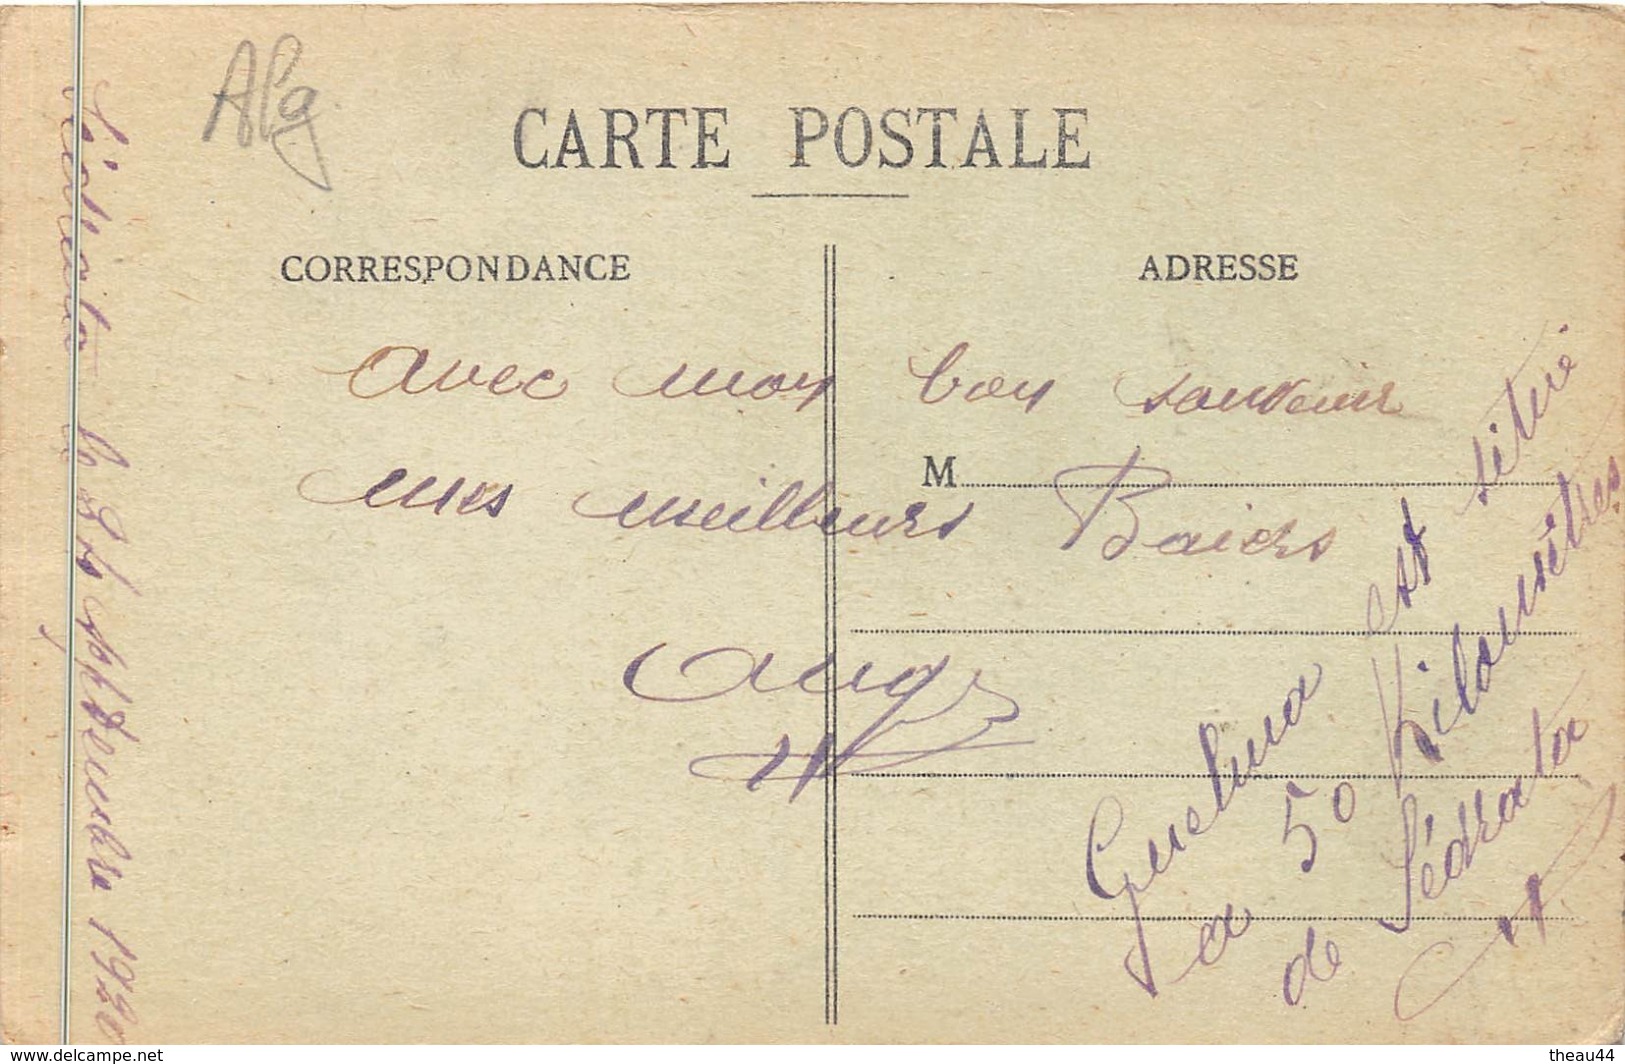 Alg.
CARTE POSTALE
CORRESPONDANCE
ADRESSE
Sédrata le 24 septembre 1920
avec mon bon souvenir
M
mes meilleurs Baiers
Guelma est situé
a 50 Kilomètres
de Sédrata
www.delcampe.net
theau44